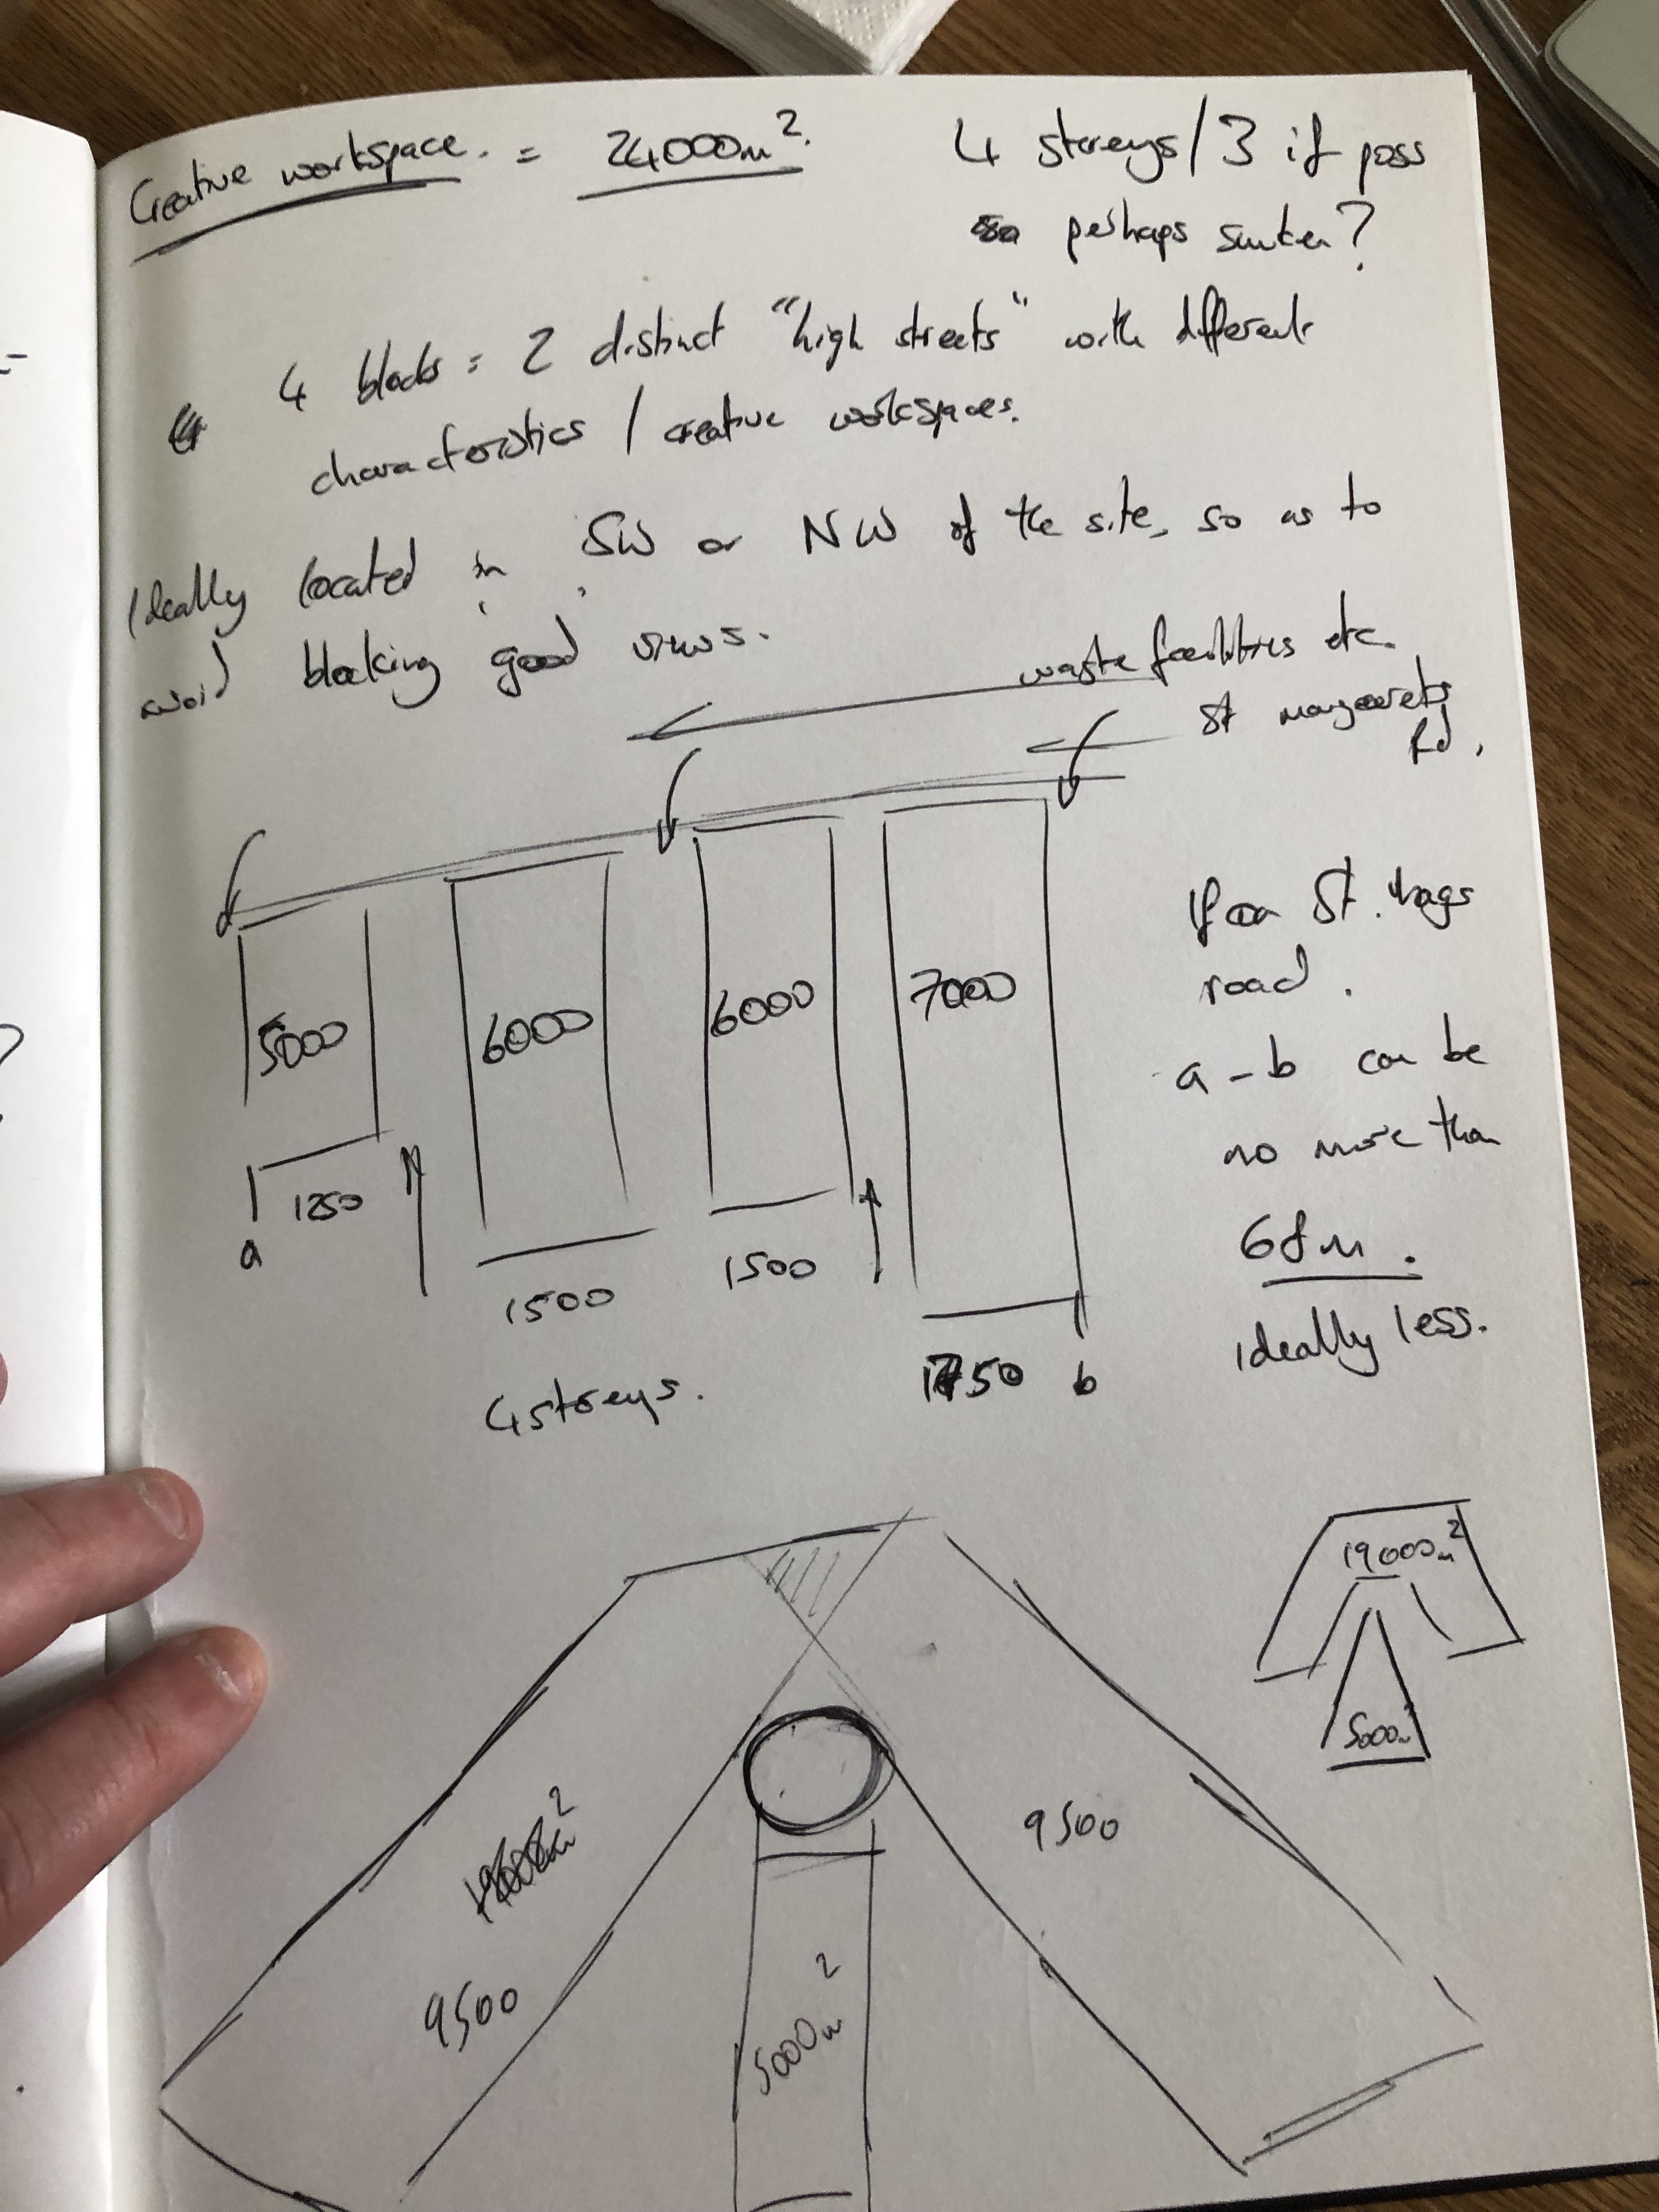 Creative workspace. = 24000m². 4 storeys/3 if poss
so perhaps sunken?
4 blocks = 2 distinct "high streets" with different
characteristics / creative workspaces.
Ideally located in SW or NW of the site, so as to
avoid blocking good views.
waste facilities etc.
St margarets
Rd.
5000
6000
6000
7000
1250
a
1500
1500
1750 b
4 storeys.
If on St. Mags
road.
a - b can be
no more than
68m.
Ideally less.
19000m²
5000m²
9500
9500
5000m²